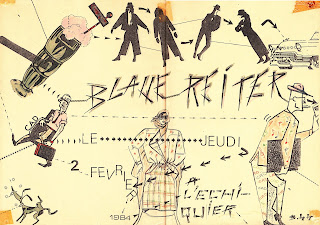 BLAUE REITER
LE JEUDI
2
FEVRIE
A
L'ECHI-
QUIER
1984